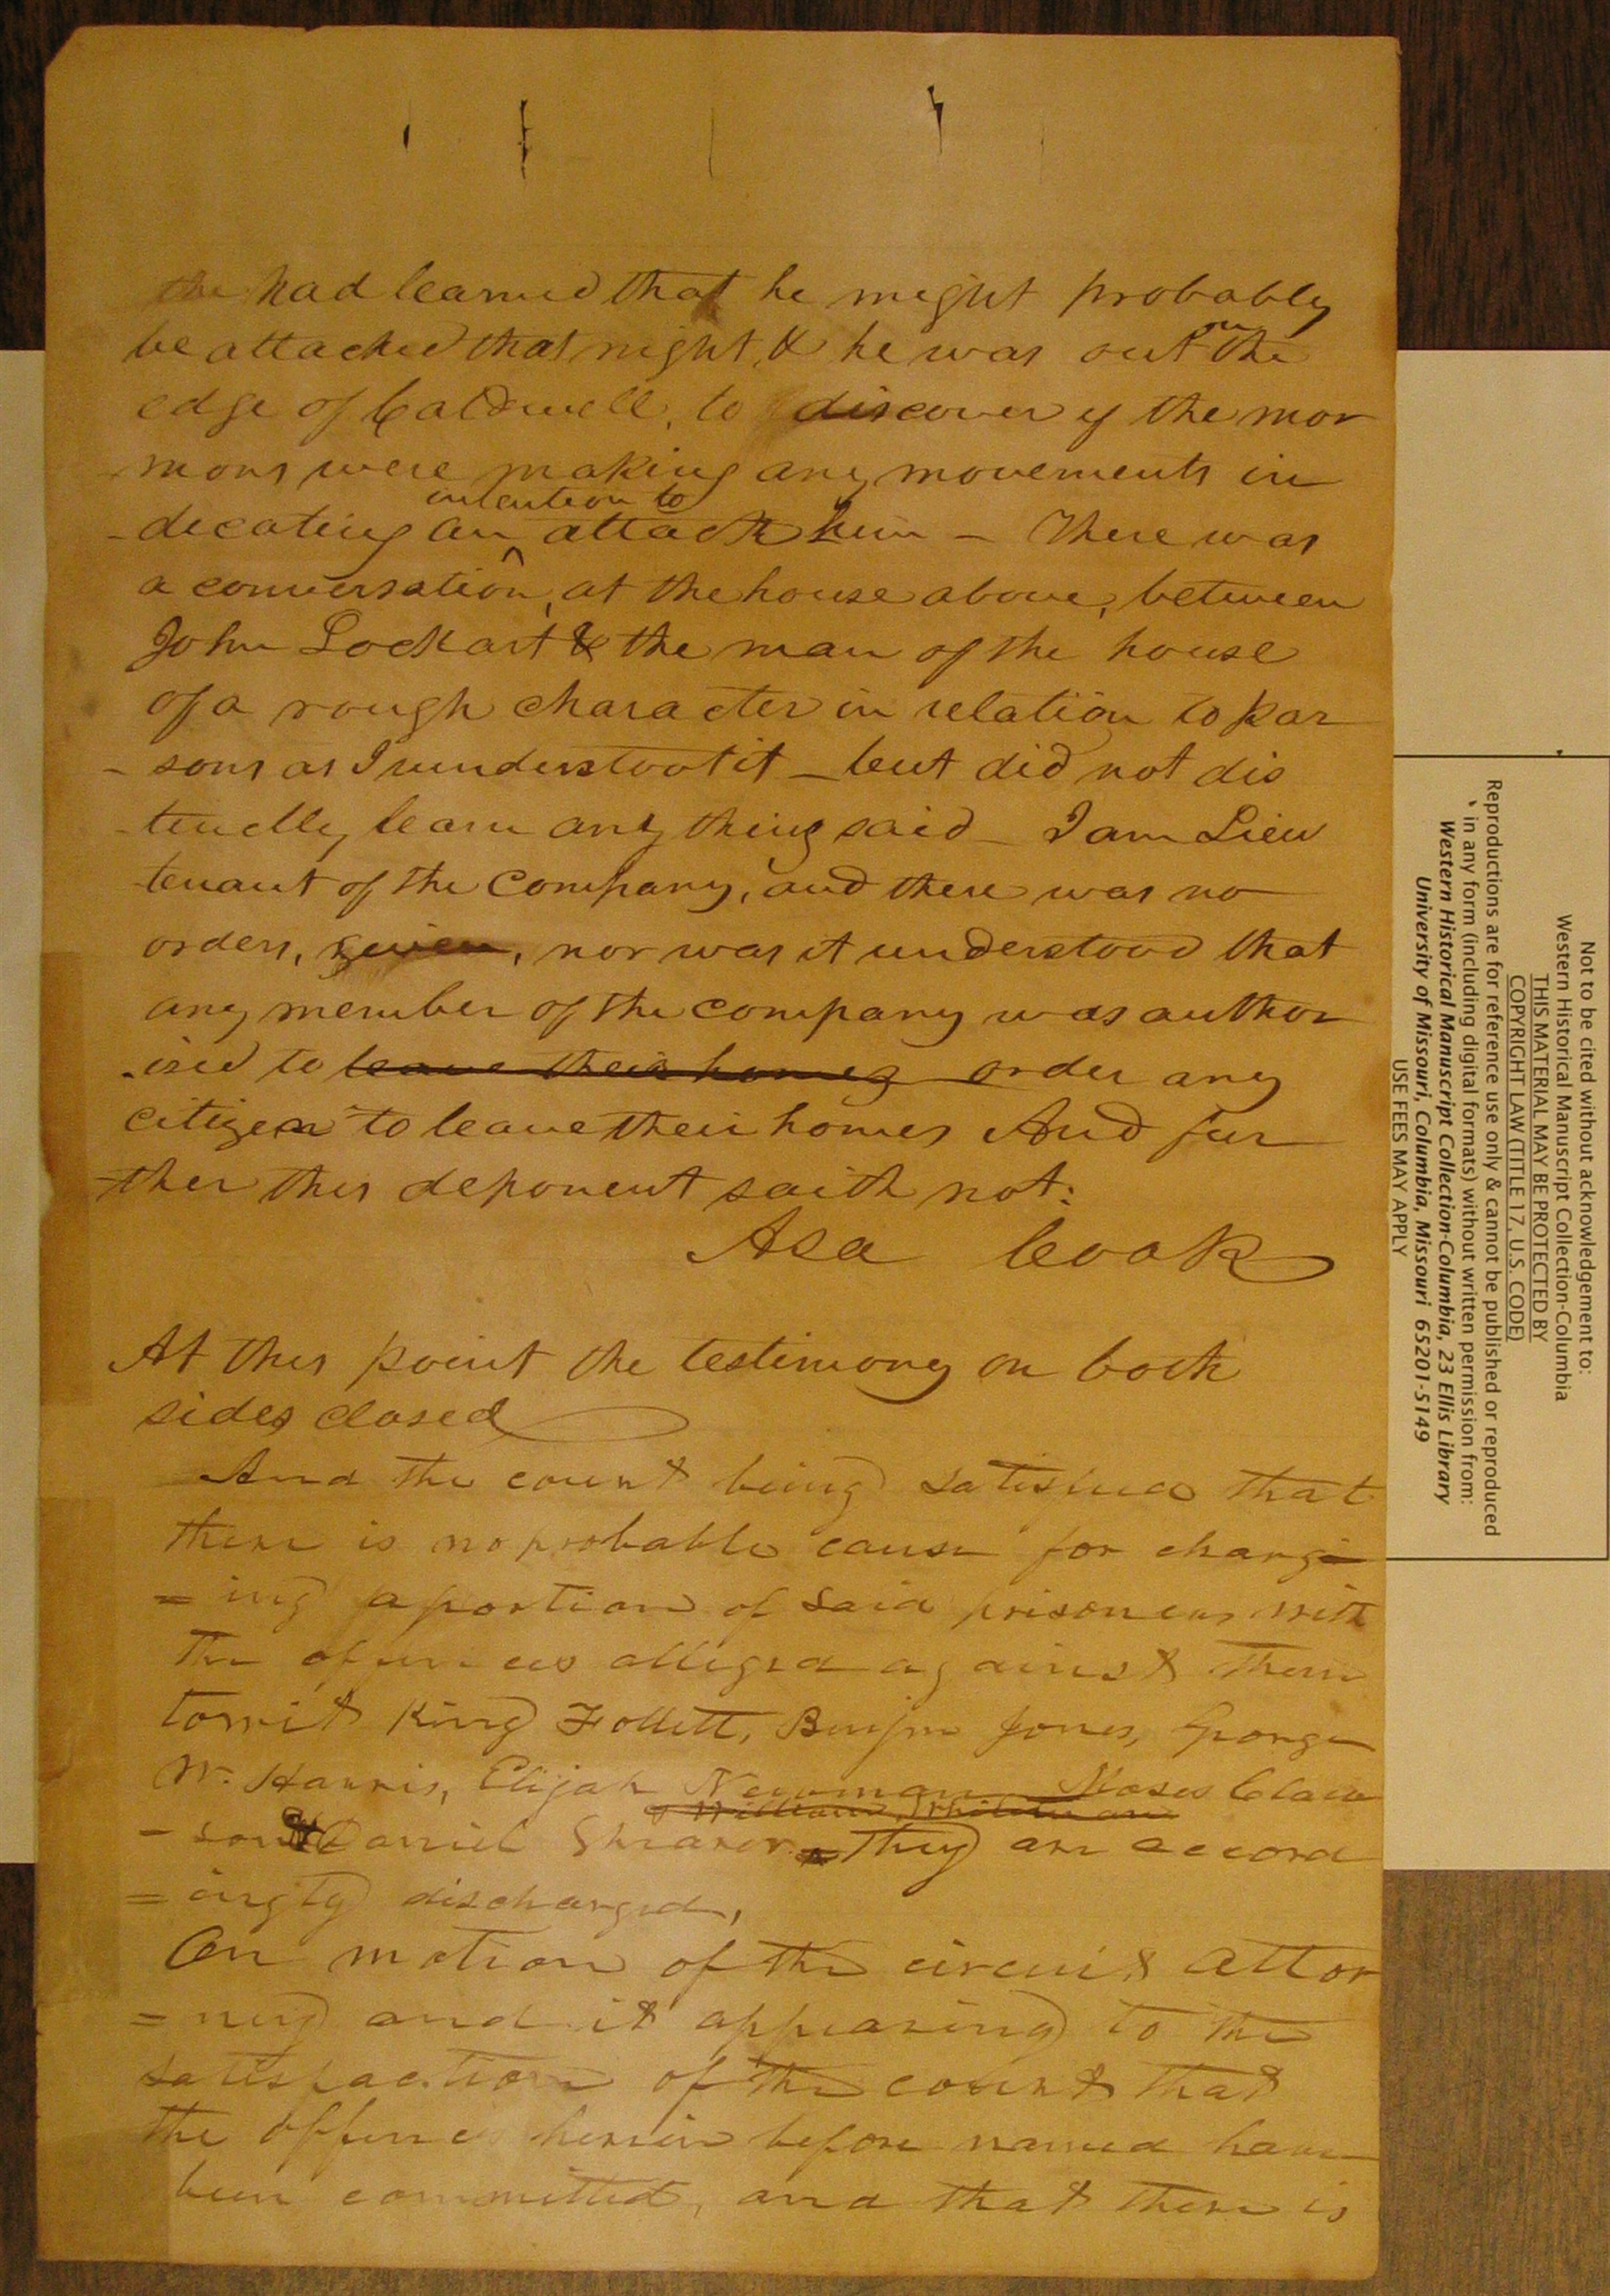 he had learned that he might probably
be attacked that night, & he was out on the
edge of Caldwell, to discover if the mor
mons were making any movements in
intention to
-dicating an attack him - There was
a conversation, at the house above, between
John Lockart & the man of the house
of a rough character in relation to Par
- sons as I understoot it - but did not dis
-tinctly learn any thing said - I am Lieu
tenant of the company, and there was no
orders, given, nor was it understood that
any member of the company was author
-ised to leave their homes order any
citizen to leave their homes And fur
-ther this deponent saith not:
Asa Cook
At this point the testimony on both
sides closed
And the court being satisfied that
there is no probable cause for charg
= ing a portion of said prisoners with
the offences alleged against them
towit King Follett, Benjm Jones, George
W. Harris, Elijah Newman Moses Claw
& William Whiteman
- son & Daniel Shearer, they are accord
= ingly discharged,
On motion of the circuit attor
= ney and it appearing to the
satisfaction of the court that
the offences herein before named have
been committed, and that there is
Not to be cited without acknowledgement to:
Western Historical Manuscript Collection-Columbia
THIS MATERIAL MAY BE PROTECTED BY
COPYRIGHT LAW (TITLE 17, U.S. CODE)
Reproductions are for reference use only & cannot be published or reproduced
in any form (including digital formats) without written permission from:
Western Historical Manuscript Collection-Columbia, 23 Ellis Library
University of Missouri, Columbia, Missouri 65201-5149
USE FEES MAY APPLY